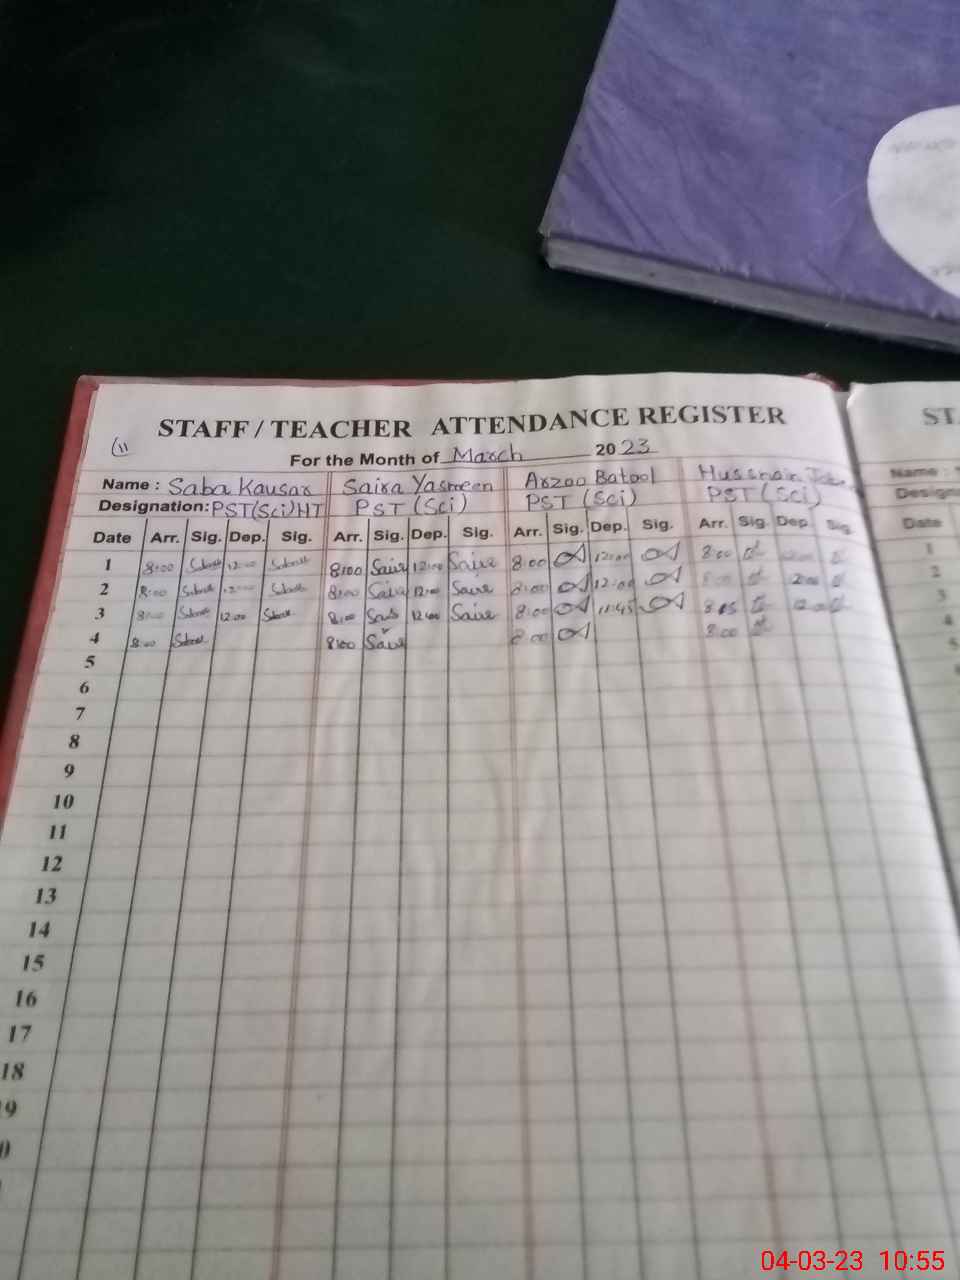 STAFF / TEACHER ATTENDANCE REGISTER
(11
For the Month of March 2023
Name : Saba Kausar Saira Yasmeen Arzoo Batool Hussnain
Designation: PST(Sci)HT PST (Sci) PST (Sci) PST (Sci)
Date Arr. Sig. Dep. Sig. Arr. Sig. Dep. Sig. Arr. Sig. Dep. Sig. Arr. Sig. Dep. Sig.
1 8:00 12:00 8:00 Saira 12:00 Saira 8:00 12:00 8:00 12:00
2 8:00 12:00 8:00 Saira 12:00 Saira 8:00 12:00 8:00 12:00
3 8:00 12:00 8:00 12:00 Saira 8:00 11:45 8:05 12:00
4 8:00 8:00 Saira 8:00 8:00
5
6
7
8
9
10
11
12
13
14
15
16
17
18
19
ST
Name :
Design
Date
1
2
3
4
5
04-03-23 10:55